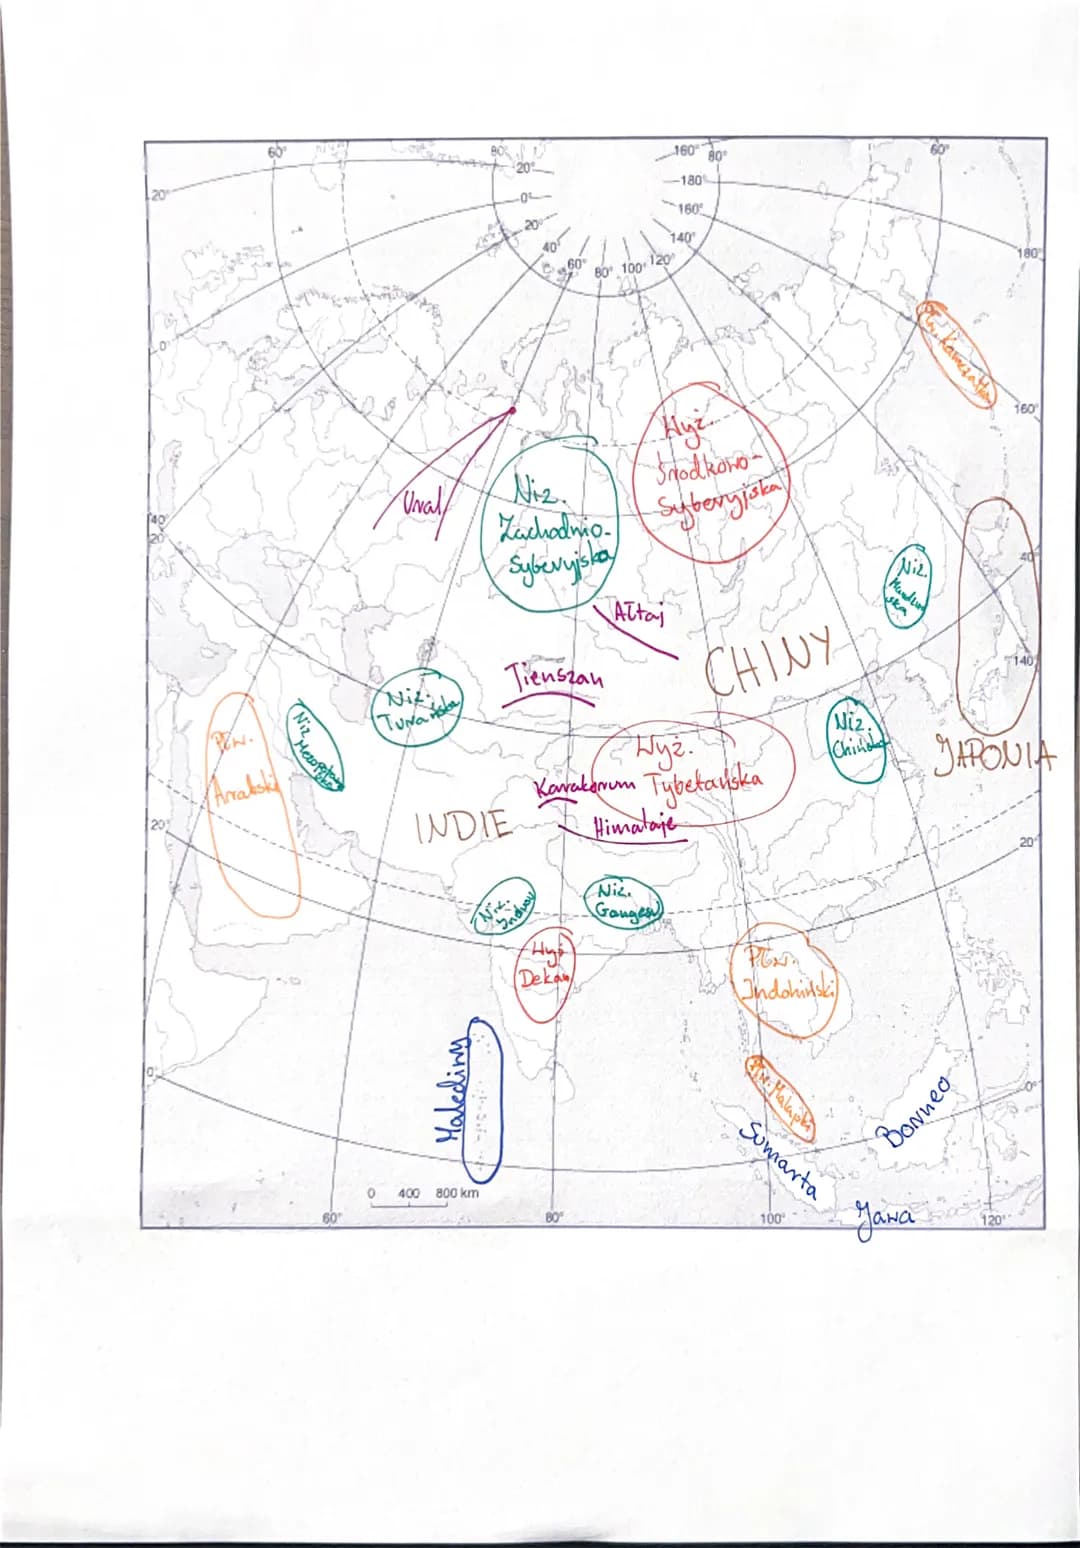 60°
80°
20°
160°
80°
60°
20°
0°
180°
20°
160°
40°
60°
80°
100°
120°
140°
180°
0°
Płw. Kamczatka
160°
Wyż.
Środkowo-
Syberyjska
Ural
Niz.
Zachodnio-
Syberyjska
40°
20°
40°
Niz.
Ałtaj
CHINY
140°
Tienszan
Niz.
Turańska
Płw.
Arabski
Niz.
Mezopotamska
Niz.
Chińska
Wyż.
Tybetańska
JAPONIA
Karakorum
Himalaje
INDIE
20°
20°
Niz.
Indusu
Niz.
Gangesu
Wyż
Dekan
Płw.
Indohiński
Malediwy
Płw. Malajski
0°
0°
Borneo
Sumarta
0 400 800 km
Jawa
60°
80°
100°
120°